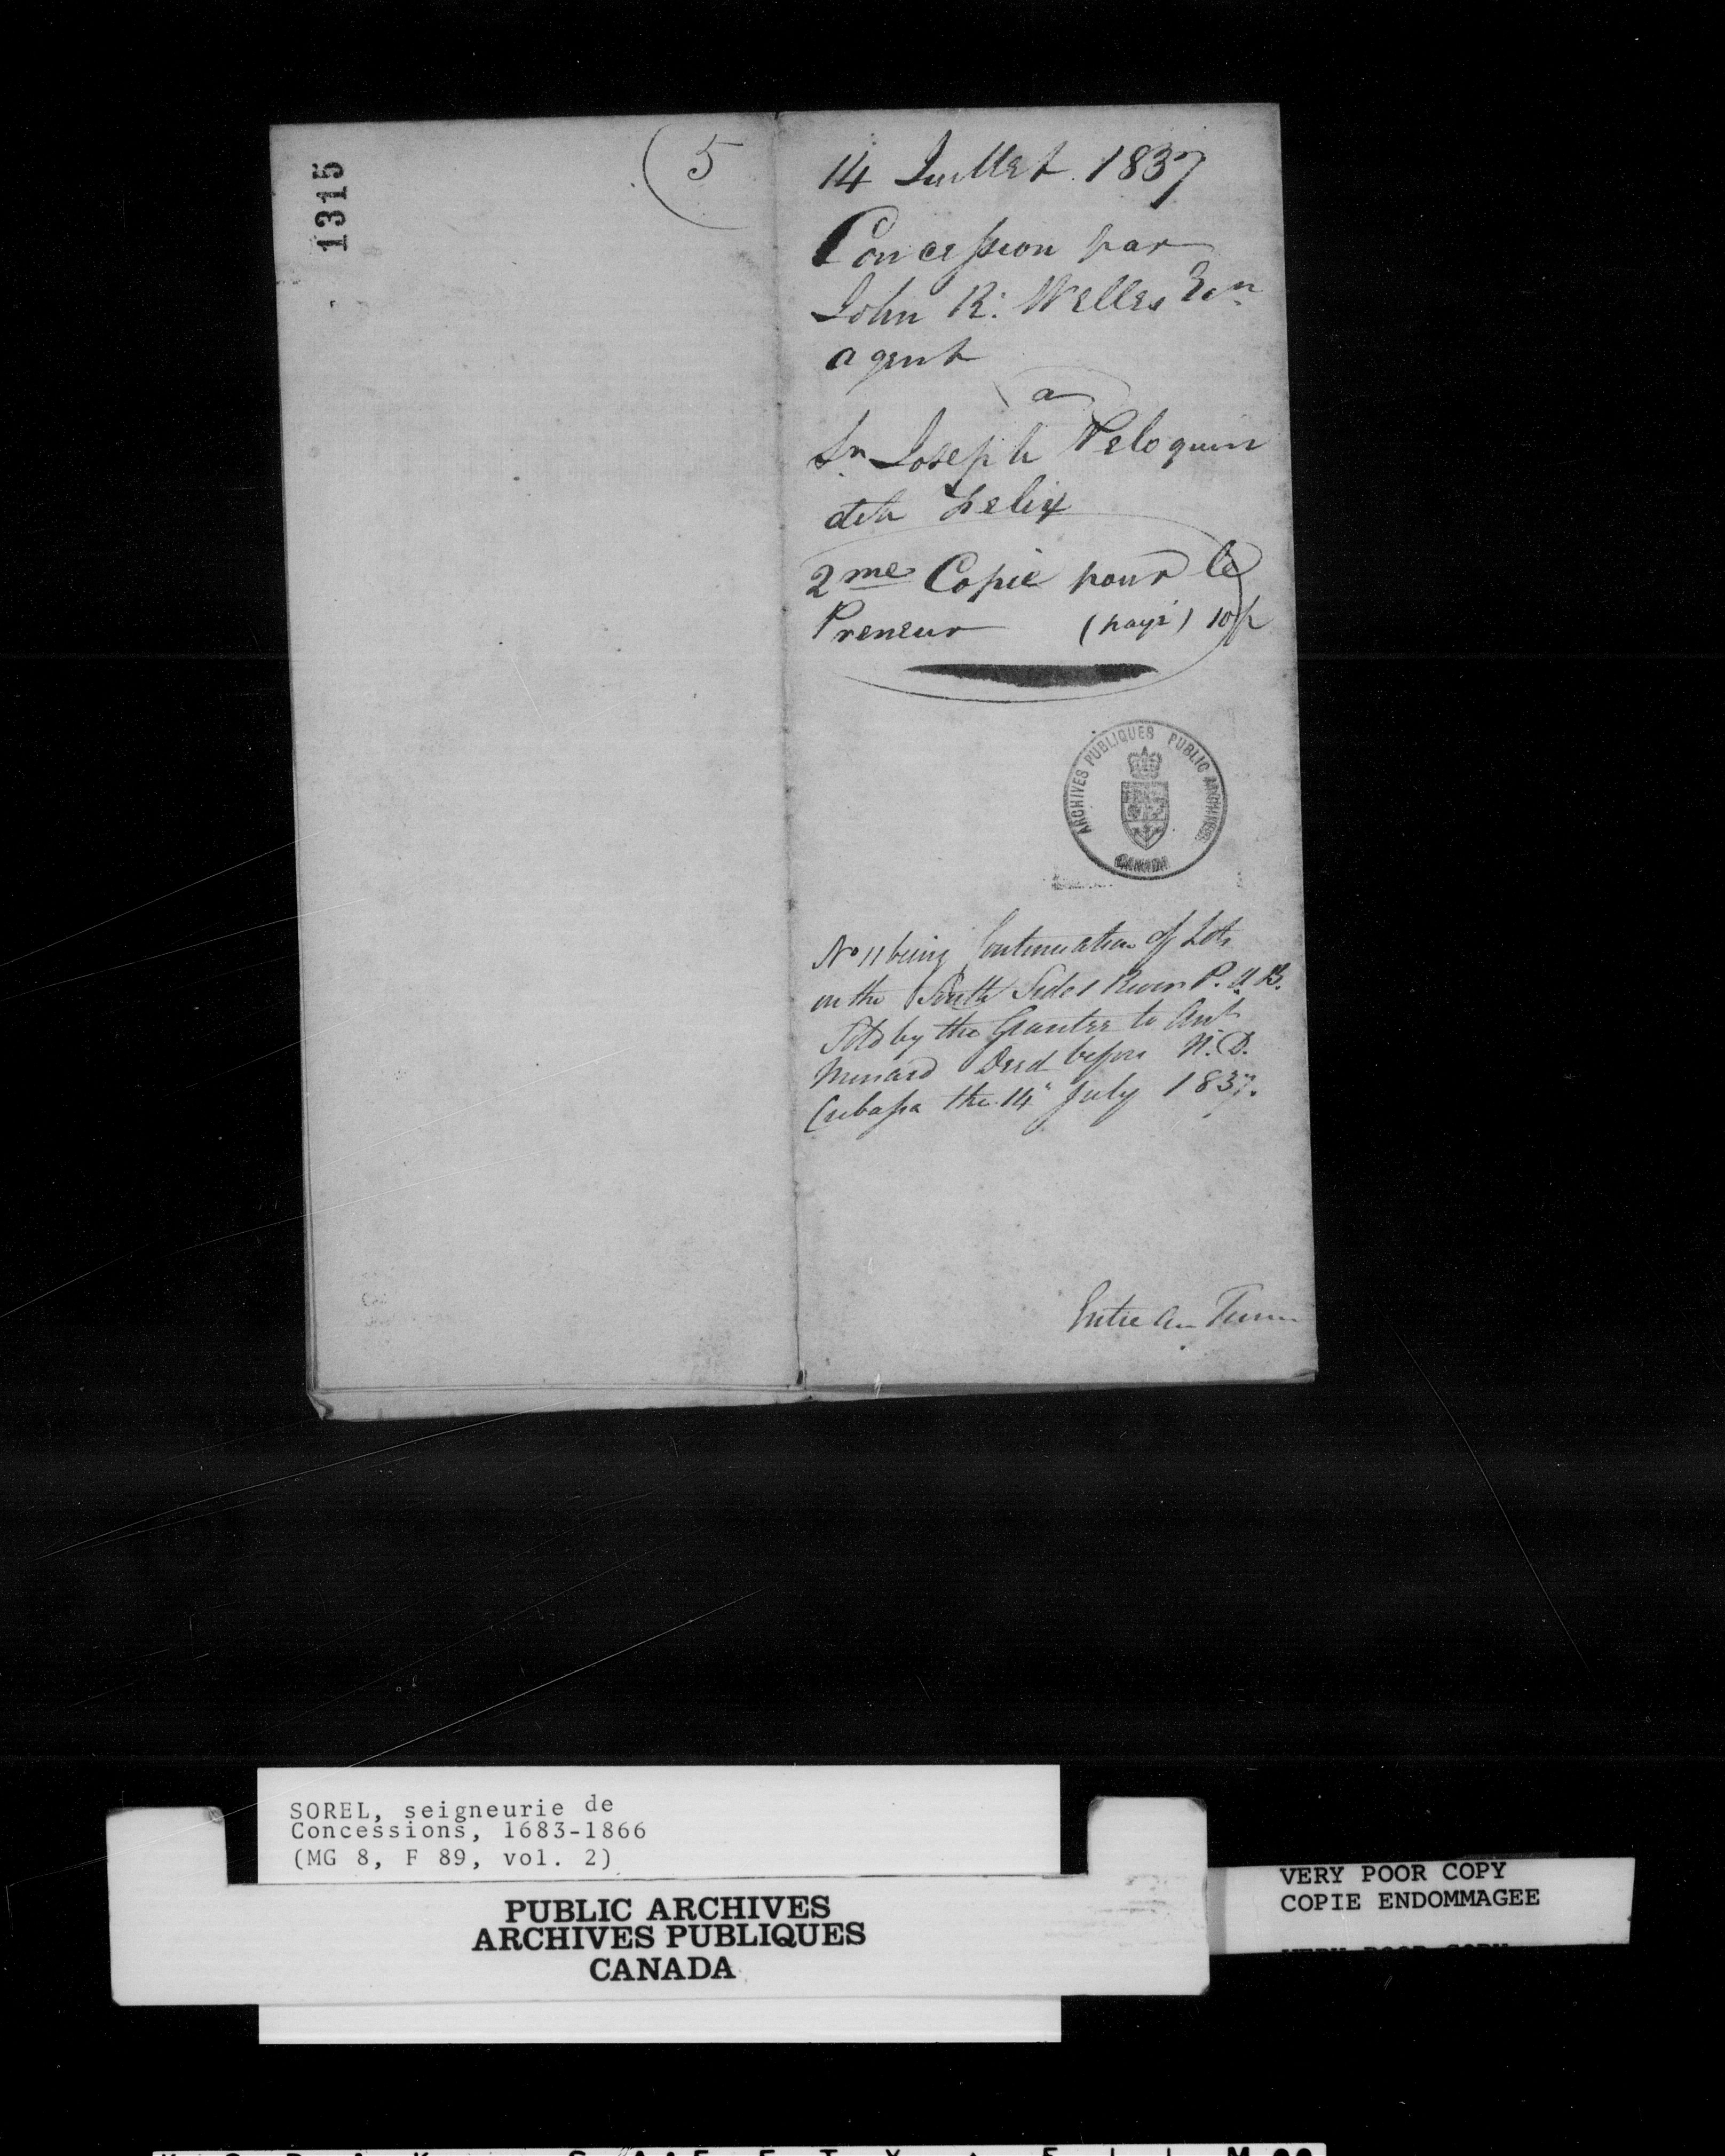 1315
5
14 Juillet 1837
Concession par
John R. Welles Ecr
agent
a
Sr Joseph Peloquin
dit Felix
2me Copie pour le
Preneur (payé) 10/
ARCHIVES PUBLIQUES PUBLIC ARCHIVES
CANADA
No 11 being Continuation of Lots
on the South Side River P. u B.
Sold by the Grantee to Ant
Menard Deed before N. D.
Crebassa the 14" July 1837.
SOREL, seigneurie de
Concessions, 1683-1866
(MG 8, F 89, vol. 2)
PUBLIC ARCHIVES
ARCHIVES PUBLIQUES
CANADA
VERY POOR COPY
COPIE ENDOMMAGEE